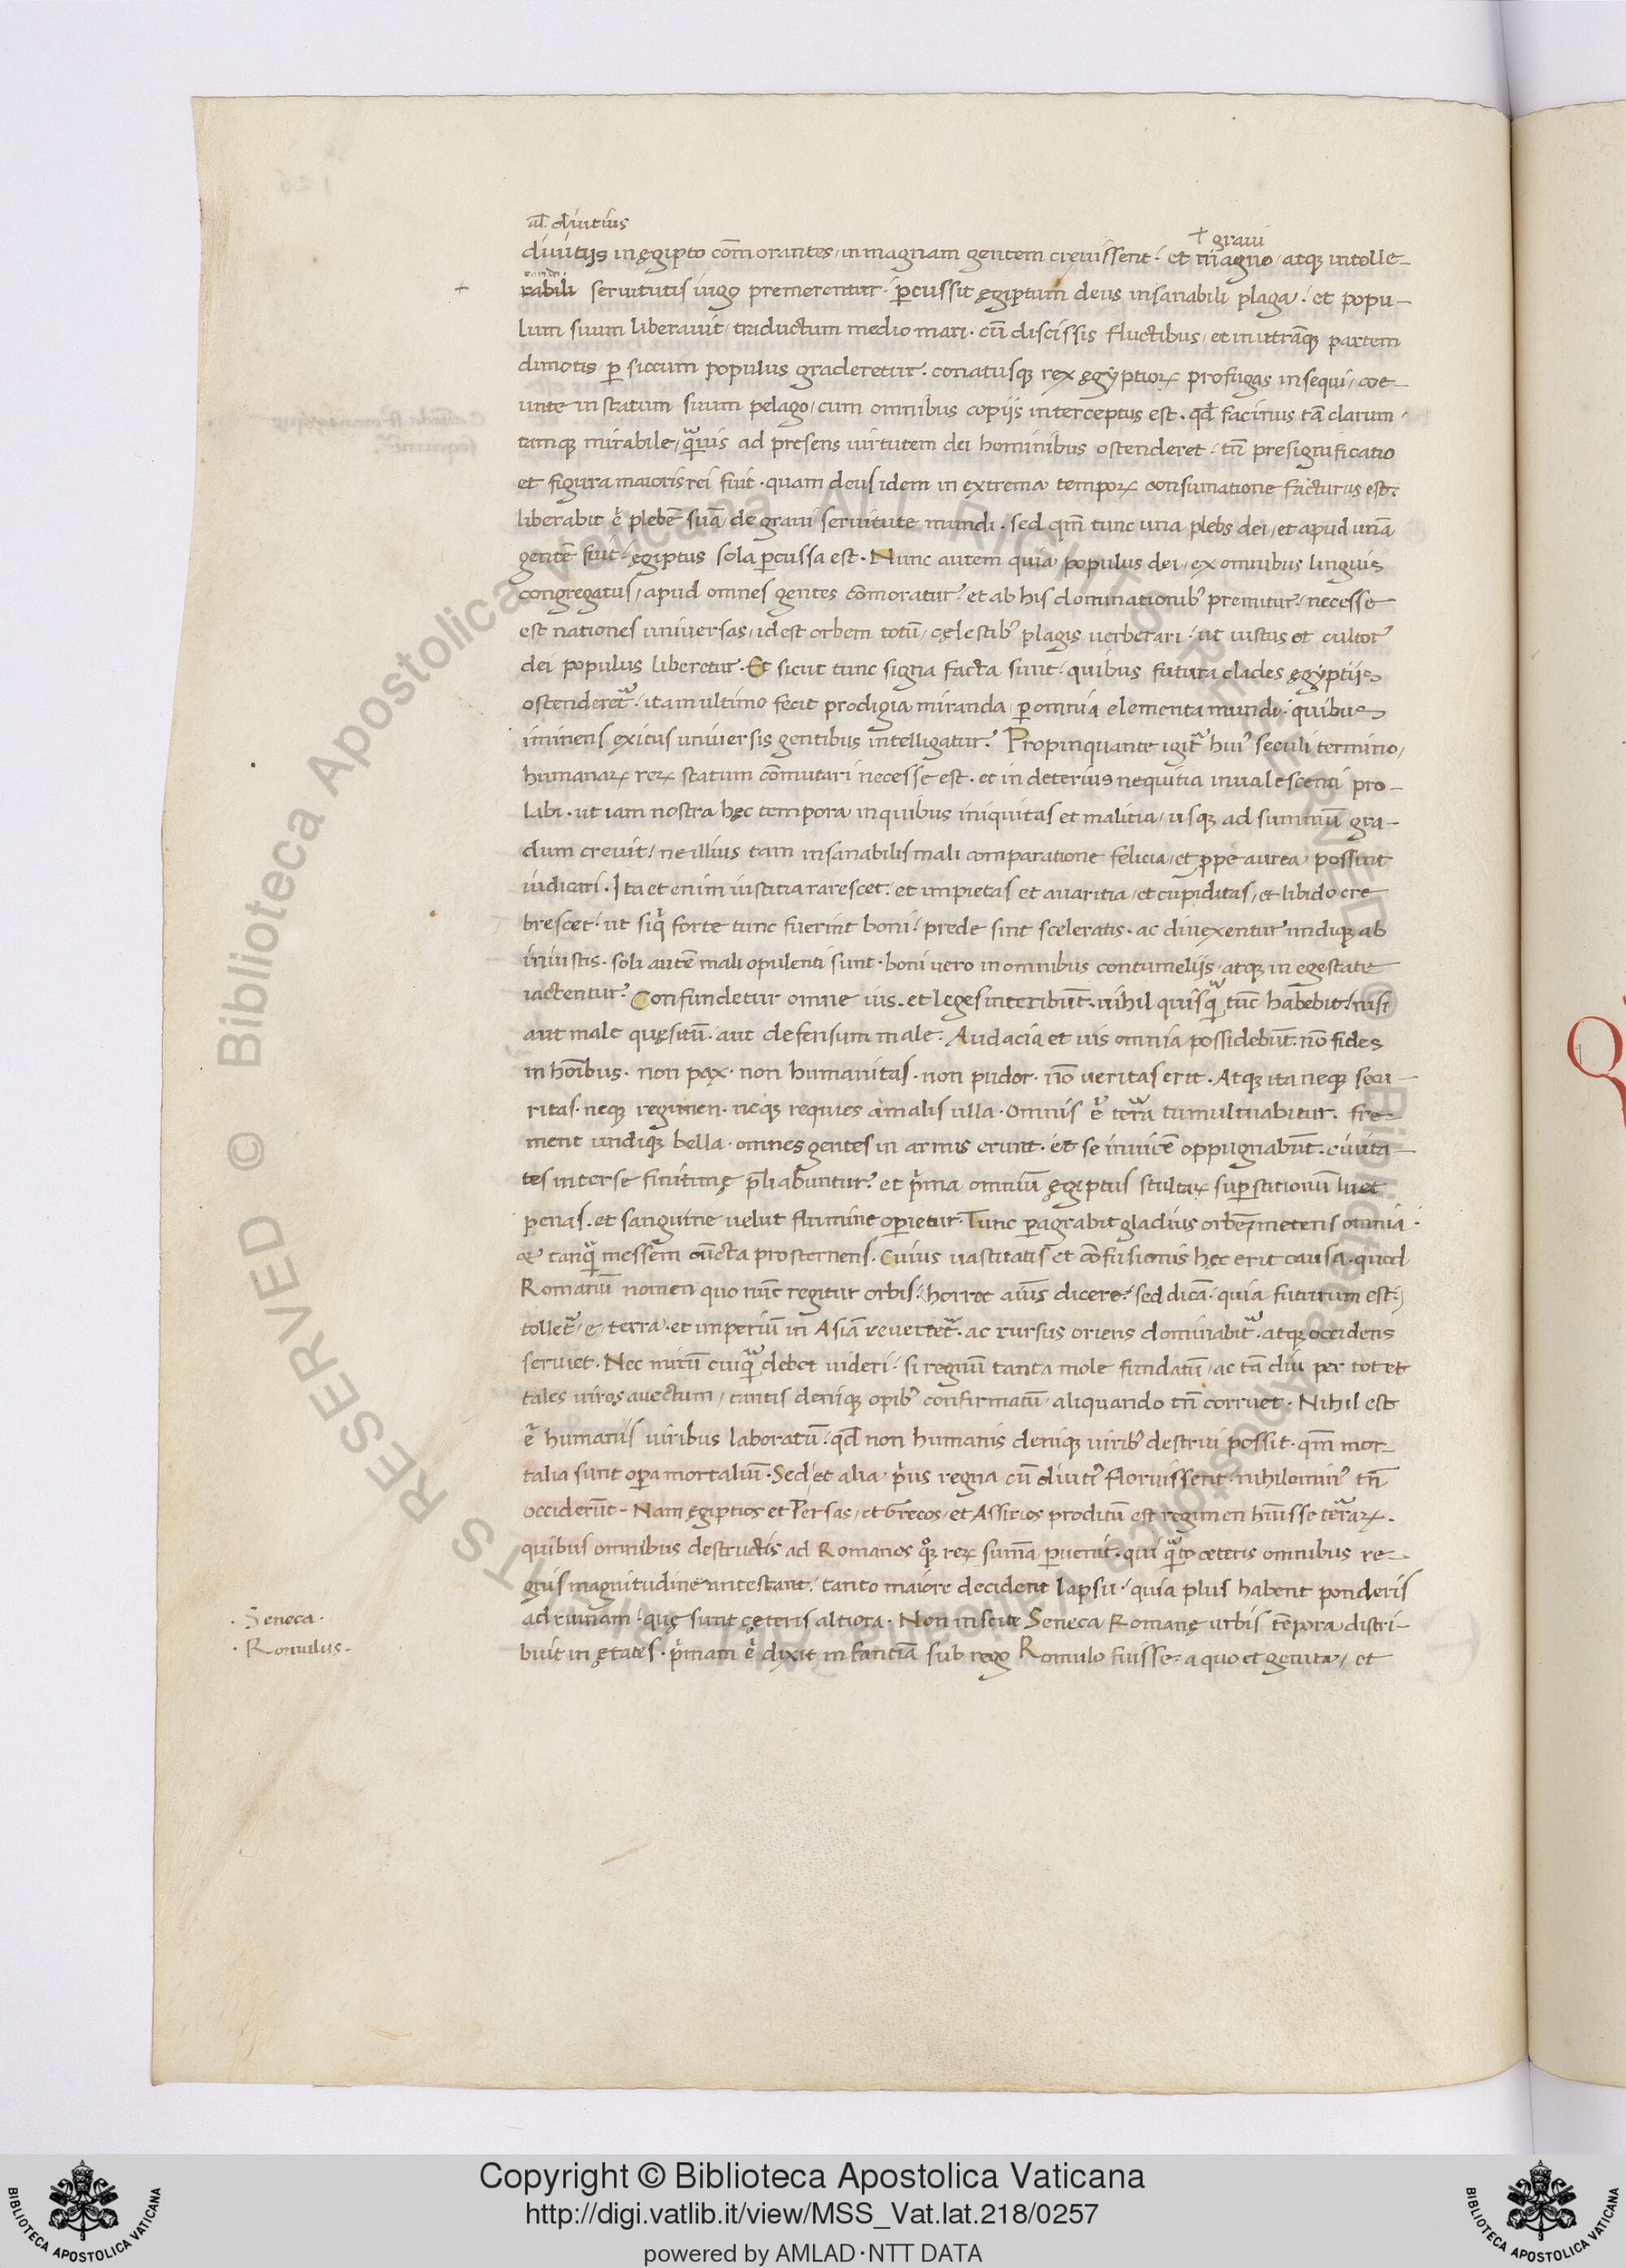 al. diutius
+ graui
diuitijs in egipto cōmorantes / in magnam gentem creuissent · et magno / atq; intolle-
+ rabili seruitutis iugo premerentur · p̄cussit ęgiptum deus insanabili plaga · et popu-
lum suum liberauit / traductum medio mari · cū discissis fluctibus / et in utrāq; partem
dimotis / p̄ siccum populus graderetur. conatusq; rex ęgyptioꝝ profugas insequi / coe-
unte in statum suum pelago / cum omnibus copijs interceptus est · qđ facinus tā clarum ·
tamq; mirabile / q̄uis ad presens uirtutem dei hominibus ostenderet · tn̄ presignificatio
et figura maioris rei fuit · quam deus idem in extrema tempoꝝ consumatione facturus est ·
liberabit .n. plebē suā de graui seruitute mundi . sed qm̄ tunc una plebs dei / et apud unā
gentē fuit · ęgiptus sola p̄cussa est · Nunc autem quia populus dei / ex omnibus linguis
congregatus / apud omnes gentes cōmoratur · et ab his dominationib; premitur · necesse
est nationes uniuersas / idest orbem totū / cęlestib; plagis uerberari · ut iustus et cultor
dei populus liberetur · Et sicut tunc signa facta sunt · quibus futura clades ęgyptijs
ostenderet̄ · ita in ultimo fecit prodigia miranda / p̄ omnia elementa mundi · quibus
iminens exitus uniuersis gentibus intelligatur. Propinquante igit̄ hui' seculi termino /
humanaꝝ reꝝ statum cōmutari necesse est · et in deterius nequitia inualescenti pro-
labi · ut iam nostra hęc tempora in quibus iniquitas et malitia / usq; ad summū gra-
dum creuit / ne illius tam insanabilis mali comparatione felicia / et ꝓpe aurea possint
iudicari · Ita et enim iustitia rarescet · et impietas et auaritia / et cupiditas / et libido cre
brescet · ut siq̇ forte tunc fuerint boni / prede sint sceleratis · ac diuexentur undiq; ab
iniustis · soli autē mali opulenti sunt · boni uero in omnibus contumelijs / atq; in egestate
iactentur. Confundetur omne ius · et leges interibūt · nihil quisq̄ tūc habebit / nisi
aut male quęsitū · aut defensum male · Audacia et uis omnia possidebūt · nō fides
in hoībus · non pax · non humanitas · non pudor · nō ueritas erit · Atq; ita neq; secu-
ritas · neq; regimen · neq; requies a malis ulla · Omnis .n. terra tumultuabitur. fre-
ment undiq; bella · omnes gentes in armis erunt · et se inuicē oppugnabūt · ciuita-
tes inter se finitimę p̄liabuntur · et ṗma omniū ęgiptus stultaꝝ sup̄stitionū luet
penas · et sanguine uelut flumine op̄ietur · Tunc p̄agrabit gladius orbē / metens omnia ·
et tanq̄ messem cūcta prosternens · Cuius uastitatis et cōfusionis hęc erit causa · quod
Romanū nomen quo nūc regitur orbis · horret aīus dicere · sed dicā · quia futurum est ·
tollet̄ / e / terra · et imperiū in Asiā reuertet̄ · ac rursus oriens dominabit̄ · atq; occidens
seruiet · Nec mirū cuiq̄ debet uideri · si regnū tanta mole fundatū / ac tā diu per tot et
tales uiros auectum / tantis deniq; opib; confirmatū / aliquando tn̄ corruet · Nihil est
.n. humanis uiribus laboratū · qđ non humanis deniq; uirib; destrui possit · qm̄ mor-
talia sunt op̄a mortaliū · Sed et alia ṗus regna cū diuti' floruissent · nihilomin' tn̄
occiderūt - Nam ęgiptios et Persas / et Grecos / et Assirios proditū est regimen h̄uisse terraꝝ.
quibus omnibus destructis ad Romanos q; reꝝ suma p̄uenit · qui q̄to ceteris omnibus re-
gnis magnitudine antestant / tanto maiore decident lapsu · quia plus habent ponderis
· Seneca · ad ruinam · quę sunt cęteris altiora · Non inscite Seneca Romanę urbis tēpora distri-
· Romulus - buit in ętates · ṗmam .n. dixit infantiā sub rege Romulo fuisse · a quo et genita / et
Copyright © Biblioteca Apostolica Vaticana
http://digi.vatlib.it/view/MSS_Vat.lat.218/0257
powered by AMLAD·NTT DATA
BIBLIOTECA APOSTOLICA VATICANA
BIBLIOTECA APOSTOLICA VATICANA